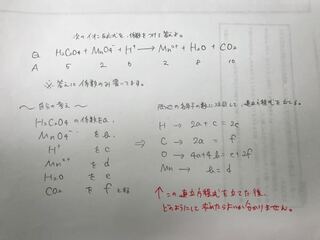 次のイオン反応式を、係数をつけて答えよ。
Q H₂C₂O₄ + MnO₄⁻ + H⁺ → Mn²⁺ + H₂O + CO₂
A 5 2 6 2 8 10
※ 答えは係数のみ書いてます。
〜自分の考え〜
H₂C₂O₄の係数をa、
MnO₄⁻ をb、
H⁺ をc
Mn²⁺ をd
H₂O をe
CO₂ をfとおく
⇒
の各原子の数に注目して、連立方程式を立てる。
H → 2a+c = 2e
C → 2a = f
O → 4a+4b = e+2f
Mn → b = d
↑この連立方程式を立てた後、
どのようにして求めたらよいか分かりません。